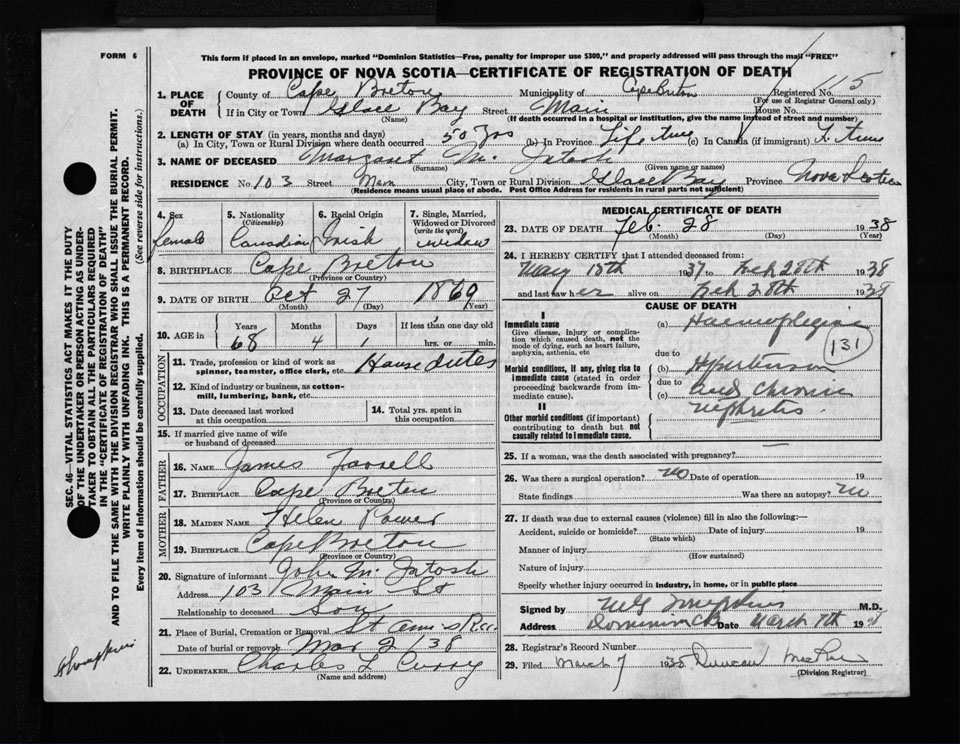 FORM 6
This form if placed in an envelope, marked "Dominion Statistics—Free, penalty for improper use $300," and properly addressed will pass through the mail "FREE"
PROVINCE OF NOVA SCOTIA—CERTIFICATE OF REGISTRATION OF DEATH
1. PLACE OF DEATH County of Cape Breton Municipality of Cape Breton Registered No. 115
(For use of Registrar General only)
If in City or Town Glace Bay Street Main House No.
(Name) (If death occurred in a hospital or institution, give the name instead of street and number)
2. LENGTH OF STAY (in years, months and days)
(a) In City, Town or Rural Division where death occurred 50 yrs (b) In Province Life time (c) In Canada (if immigrant) L. time
3. NAME OF DECEASED Margaret Mc Intosh
(Surname) (Given name or names)
RESIDENCE No. 103 Street Main City, Town or Rural Division Glace Bay Province Nova Scotia
(Residence means usual place of abode. Post Office Address for residents in rural parts not sufficient)
4. Sex
female
5. Nationality
(Citizenship)
Canadian
6. Racial Origin
Irish
7. Single, Married, Widowed or Divorced
(write the word)
widow
8. BIRTHPLACE Cape Breton
(Province or Country)
9. DATE OF BIRTH Oct 27 1869
(Month) (Day) (Year)
10. AGE in Years Months Days If less than one day old
68 4 1 hrs. or min.
OCCUPATION
11. Trade, profession or kind of work as spinner, teamster, office clerk, etc. House duties
12. Kind of industry or business, as cotton-mill, lumbering, bank, etc.
13. Date deceased last worked at this occupation
14. Total yrs. spent in this occupation
15. If married give name of wife or husband of deceased
FATHER
16. NAME James Farrell
17. BIRTHPLACE Cape Breton
(Province or Country)
MOTHER
18. MAIDEN NAME Helen Power
19. BIRTHPLACE Cape Breton
(Province or Country)
20. Signature of informant John Mc Intosh
Address 103 Main St
Relationship to deceased Son
21. Place of Burial, Cremation or Removal St Ann's
Date of burial or removal Mar 2 38
22. UNDERTAKER Charles L Curry
(Name and address)
MEDICAL CERTIFICATE OF DEATH
23. DATE OF DEATH Feb. 28 1938
(Month) (Day) (Year)
24. I HEREBY CERTIFY that I attended deceased from:
May 15th 1937 to Feb 28th 1938
and last saw her alive on Feb 28th 1938
CAUSE OF DEATH
I
Immediate cause
Give disease, injury or complication which caused death, not the mode of dying, such as heart failure, asphyxia, asthenia, etc
(a) Haemoplegia
131
due to
Morbid conditions, if any, giving rise to immediate cause (stated in order proceeding backwards from immediate cause).
(b) Hypertension
due to
(c) and chronic
nephritis.
II
Other morbid conditions (if important) contributing to death but not causally related to immediate cause.
25. If a woman, was the death associated with pregnancy?
26. Was there a surgical operation? No Date of operation 19
State findings Was there an autopsy? No
27. If death was due to external causes (violence) fill in also the following:—
Accident, suicide or homicide? Date of injury 19
(State which)
Manner of injury
(How sustained)
Nature of injury
Specify whether injury occurred in industry, in home, or in public place
Signed by M.D.
Address Dominion CB Date March 7th 1938
28. Registrar's Record Number
29. Filed March 7 1938 Duncan
(Division Registrar)
SEC. 46—VITAL STATISTICS ACT MAKES IT THE DUTY
OF THE UNDERTAKER OR PERSON ACTING AS UNDERTAKER
TO OBTAIN ALL THE PARTICULARS REQUIRED
IN THE "CERTIFICATE OF REGISTRATION OF DEATH"
AND TO FILE THE SAME WITH THE DIVISION REGISTRAR WHO SHALL ISSUE THE BURIAL PERMIT.
WRITE PLAINLY WITH UNFADING INK. THIS IS A PERMANENT RECORD.
Every item of information should be carefully supplied. (See reverse side for instructions.)